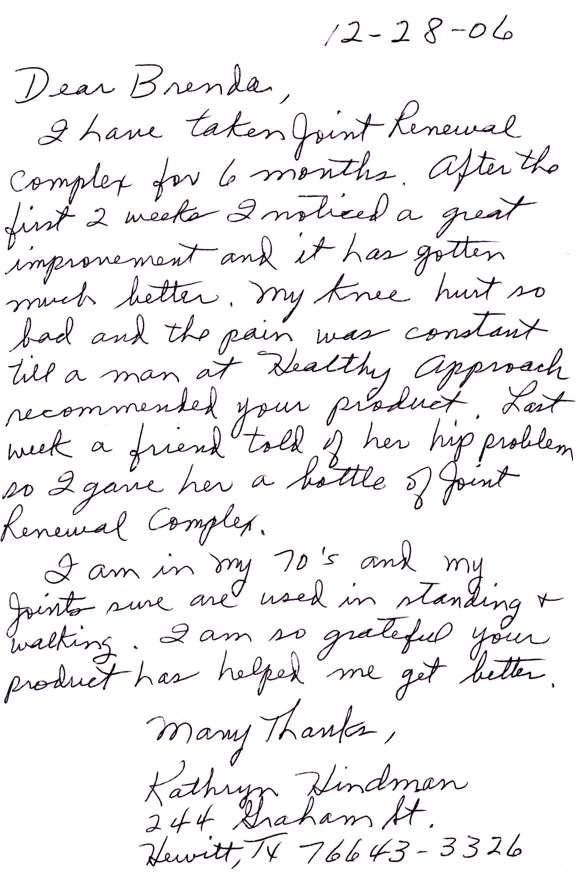 12-28-06
Dear Brenda,
I have taken Joint Renewal
Complex for 6 months. After the
first 2 weeks I noticed a great
improvement and it has gotten
much better. My knee hurt so
bad and the pain was constant
till a man at Healthy Approach
recommended your product. Last
week a friend told of her hip problem
so I gave her a bottle of Joint
Renewal Complex.
I am in my 70's and my
joints sure are used in standing +
walking. I am so grateful your
product has helped me get better.
Many Thanks,
Kathryn Hindman
244 Graham St.
Hewitt, TX 76643-3326